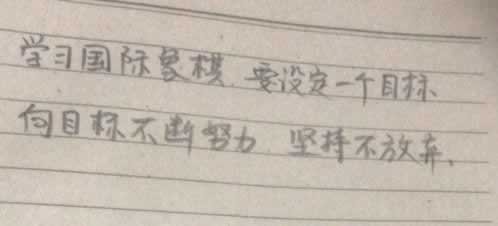 学习国际象棋 要设定一个目标、
向目标不断努力 坚持不放弃、